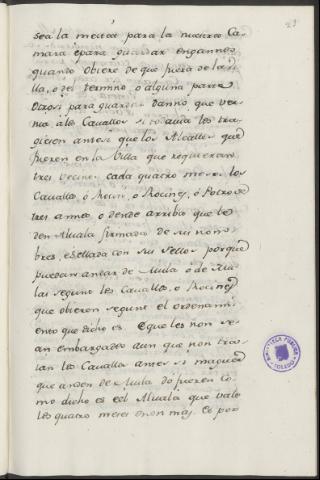 sea la meitad para la nuestra Ca-
mara epara guardar engannos
quando obiere de que fuera de la Vi
lla, o del termino o alguna parte
Otrosi para guardar danno que ver-
nia a los Cavallos si todavia les tra-
gieren antes que los Alcalles que
fueren en la Villa que requieran
tres veces cada quatro meses los
Cavallos, ó Rocin, ó Rocines, ó Potro de
tres annos o dende arriba que le
den Alvala firmado de su nom-
bres, esellada con su Sello porque
puedan andar de Mula o de Mu-
las segunt los Cavallos, ó Rocines
que obieren segunt el ordenami
ento que dicho es. Eque les non se-
an embargados aun que non trai-
an los Cavallos ante si maguer
que anden de Mula do fueren Co-
mo dicho es eel Alvala que vala
los quatro meses enon mas. Et por
BIBLIOTECA PUBLICA
TOLEDO